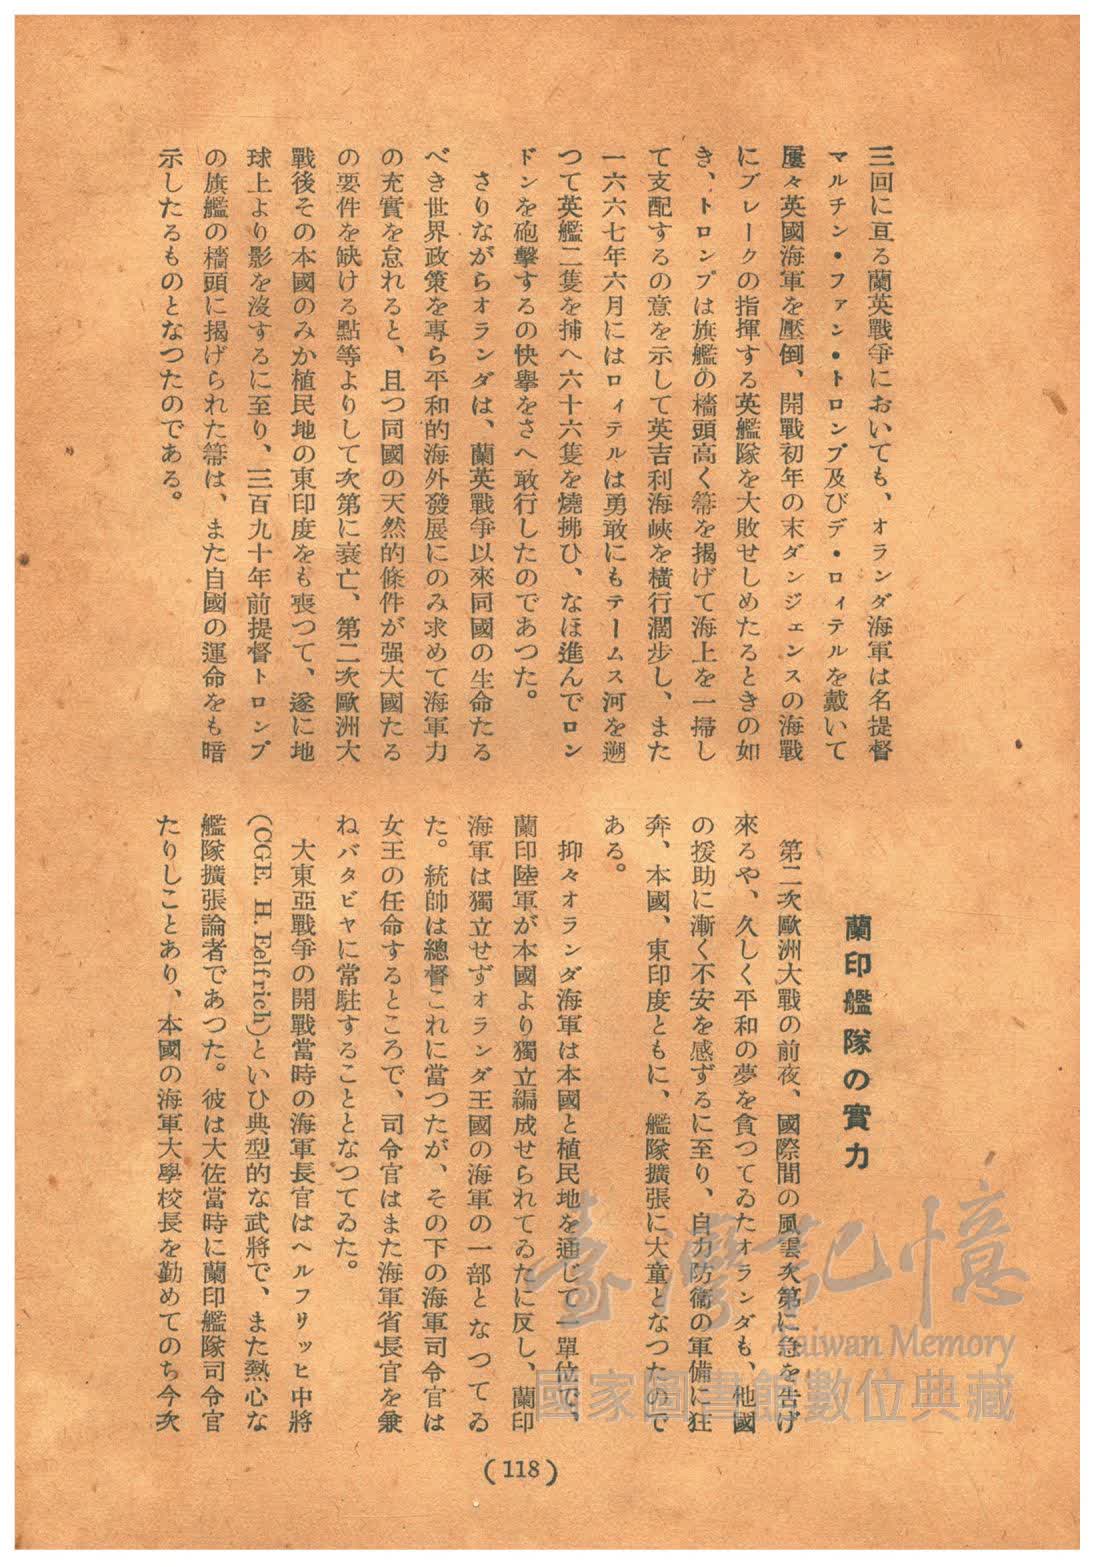 三回に亘る蘭英戰爭においても、オランダ海軍は名提督
マルチン・ファン・トロンプ及びデ・ロイテルを戴いて
屢々英國海軍を壓倒、開戰初年の末ダンジェンスの海戰
にブレークの指揮する英艦隊を大敗せしめたるときの如
き、トロンプは旗艦の檣頭高く箒を揭げて海上を一掃し
て支配するの意を示して英吉利海峽を橫行濶步し、また
一六六七年六月にはロイテルは勇敢にもテームス河を遡
つて英艦二隻を捕へ六十六隻を燒拂ひ、なほ進んでロン
ドンを砲擊するの快擧をさへ敢行したのであつた。
さりながらオランダは、蘭英戰爭以來同國の生命たる
べき世界政策を專ら平和的海外發展にのみ求めて海軍力
の充實を怠れると、且つ同國の天然的條件が强大國たる
の要件を缺ける點等よりして次第に衰亡、第二次歐洲大
戰後その本國のみか植民地の東印度をも喪つて、遂に地
球上より影を沒するに至り、三百九十年前提督トロンプ
の旗艦の檣頭に揭げられた箒は、また自國の運命をも暗
示したるものとなつたのである。
蘭印艦隊の實力
第二次歐洲大戰の前夜、國際間の風雲次第に急を吿げ
來るや、久しく平和の夢を貪つてゐたオランダも、他國
の援助に漸く不安を感ずるに至り、自力防衞の軍備に狂
奔、本國、東印度ともに、艦隊擴張に大童となつたので
ある。
抑々オランダ海軍は本國と植民地を通じて一單位で、
蘭印陸軍が本國より獨立編成せられてゐたに反し、蘭印
海軍は獨立せずオランダ王國の海軍の一部となつてゐ
た。統帥は總督これに當つたが、その下の海軍司令官は
女王の任命するところで、司令官はまた海軍省長官を兼
ねバタビヤに常駐することとなつてゐた。
大東亞戰爭の開戰當時の海軍長官はヘルフリッヒ中將
(CGE. H. Eelfrich)といひ典型的な武將で、また熱心な
艦隊擴張論者であつた。彼は大佐當時に蘭印艦隊司令官
たりしことあり、本國の海軍大學校長を勤めてのち今次
(118)
臺灣記憶
Taiwan Memory
國家圖書館數位典藏